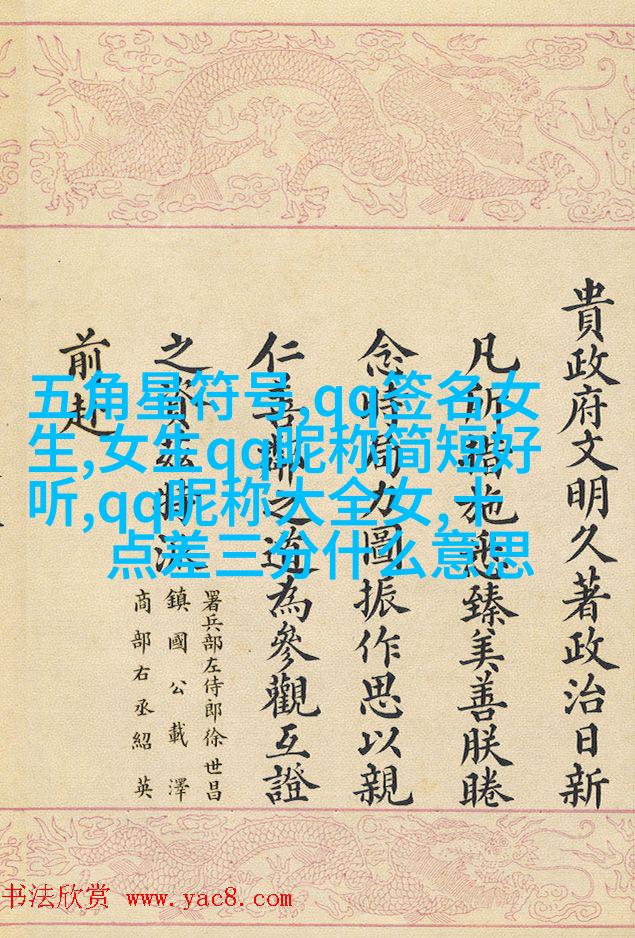 貴政府文明久著政治日新
凡所措施悉臻美善朕睠
念時局力圖振作思以親
仁善鄰之道為參觀互證
之資茲特派
署兵部左侍郎徐世昌
鎮國公載澤
商部右丞紹英
前赴
五角星符号,qq签名女
生,女生qq昵称简短好
听,qq昵称大全女,十
点差三分什么意思
书法欣赏 www.yac8.com